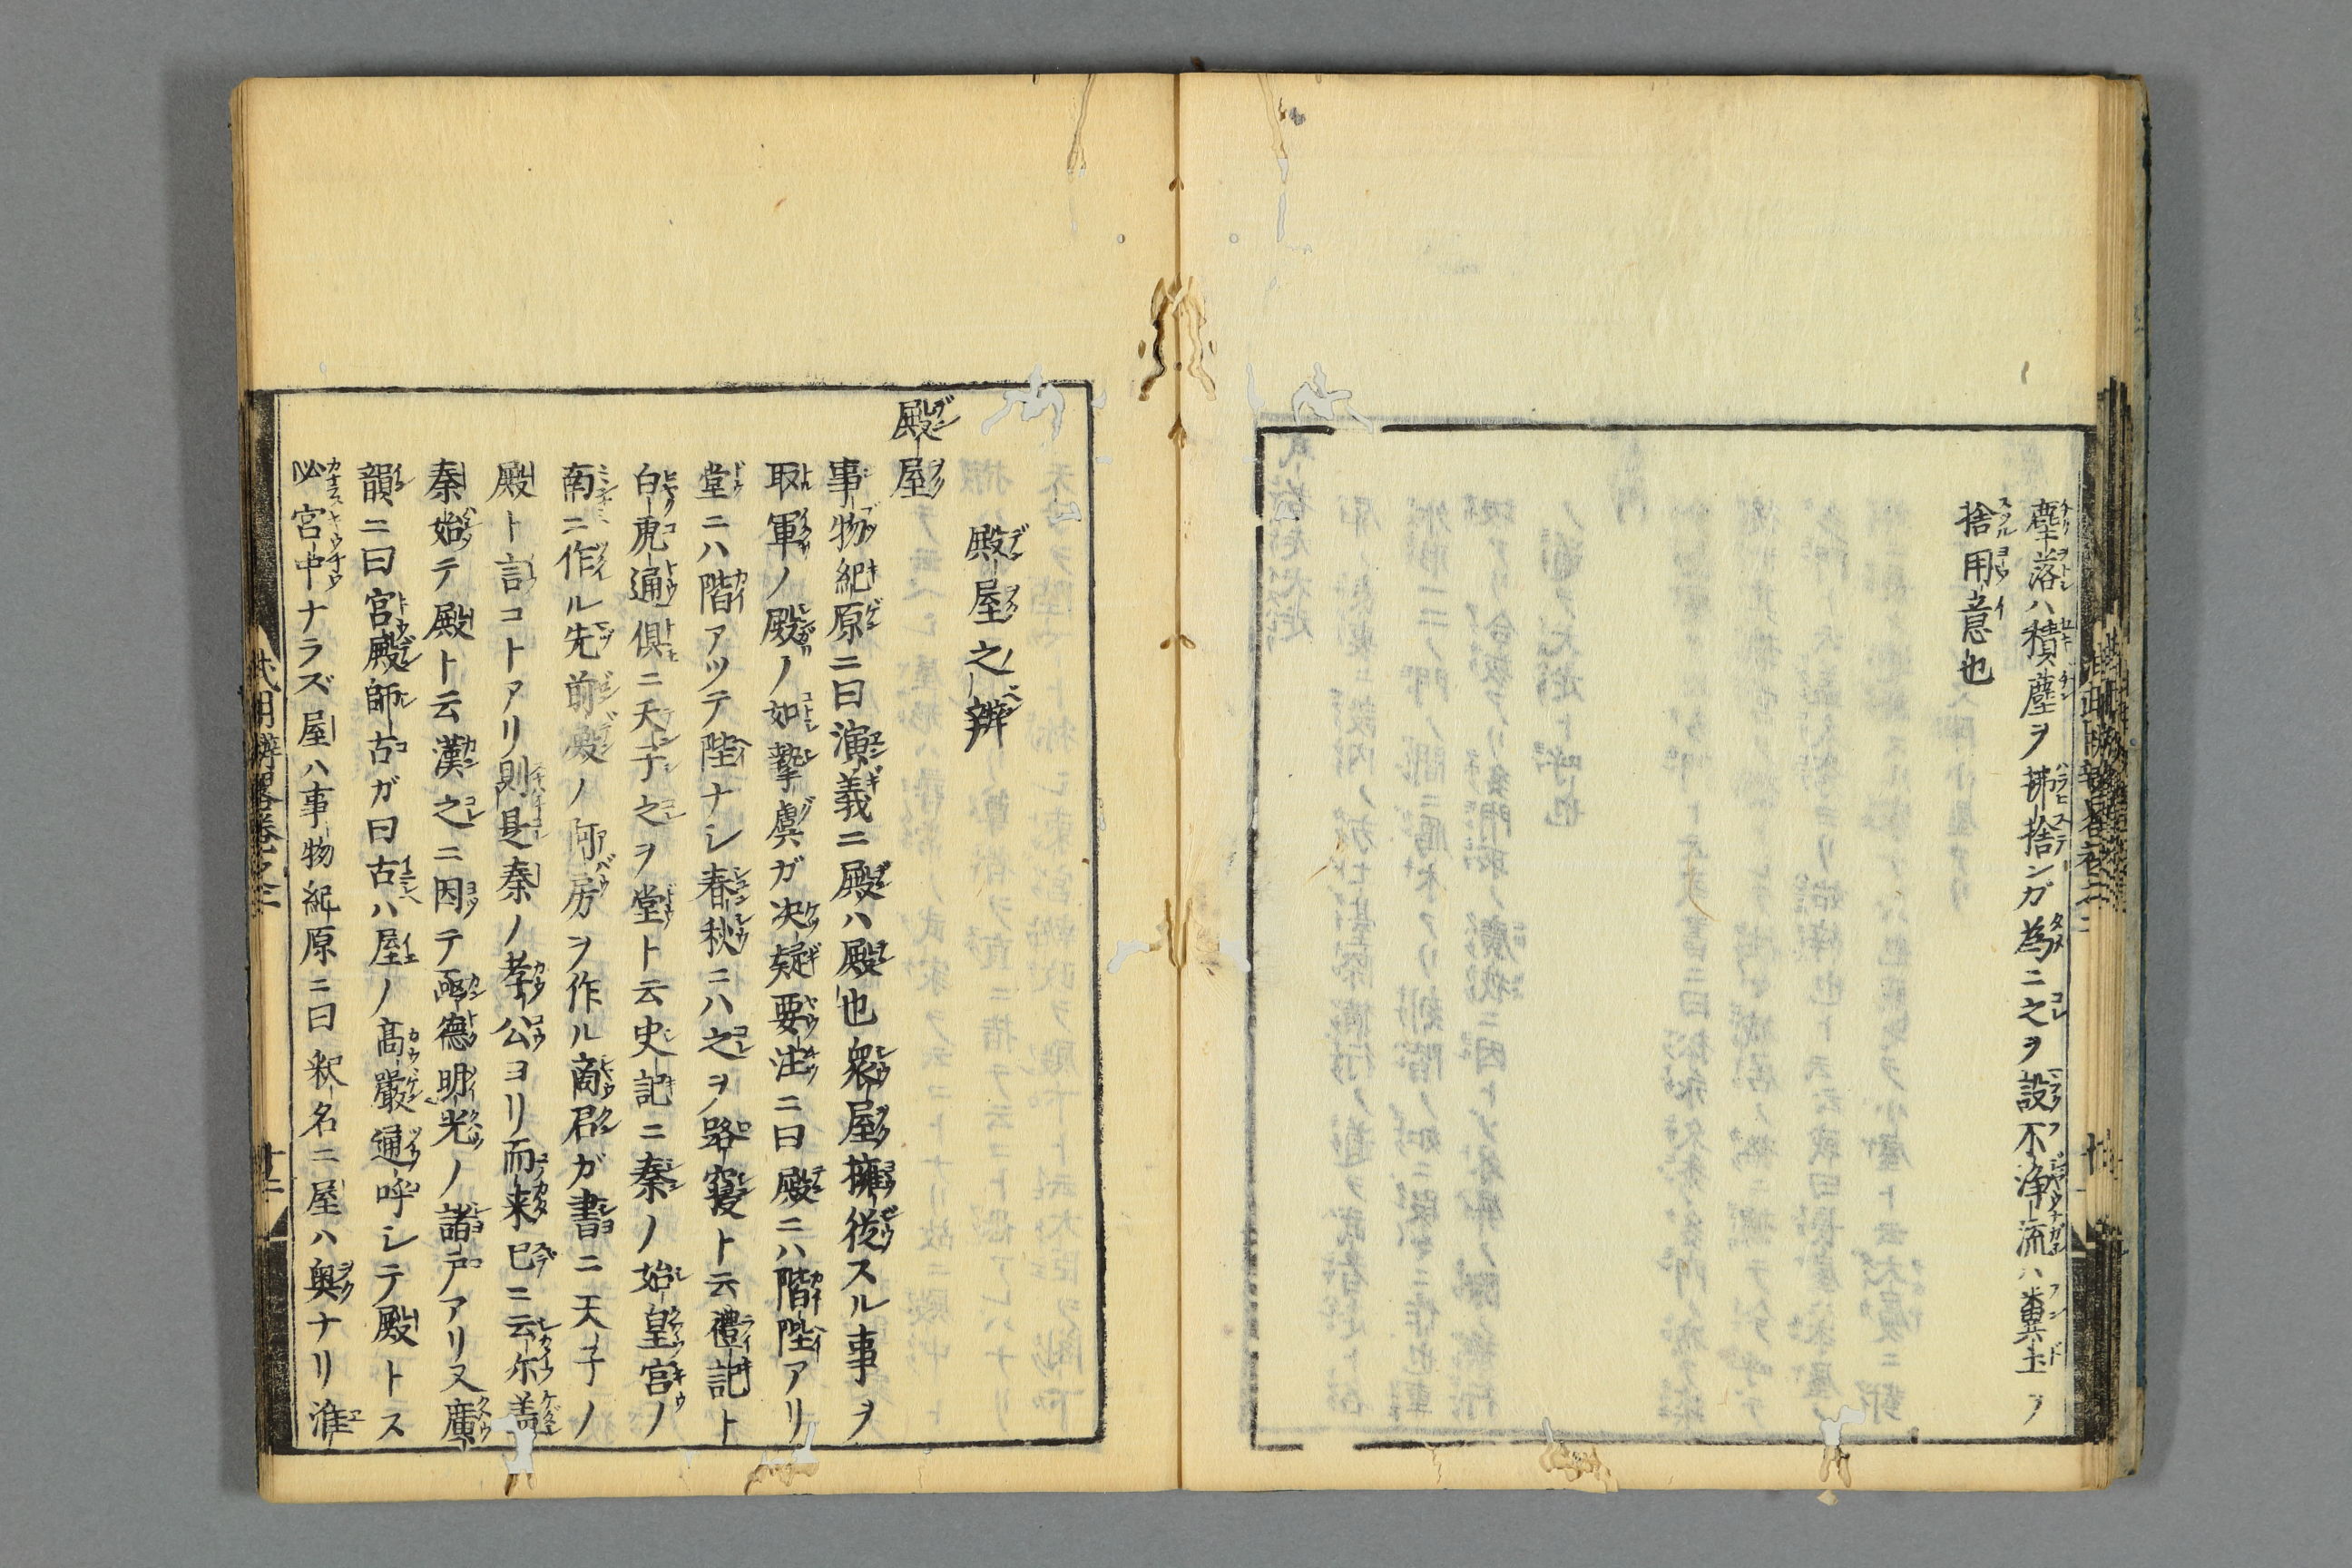 塵落ハ積塵ヲ拂捨ンガ為ニ之ヲ設不浄流ハ糞土ヲ
捨用意也
殿屋之辨
殿屋
事物紀原ニ曰演義ニ殿ハ殿也衆屋擁従スル事ヲ
取軍ノ殿ノ如摯虞ガ决疑要注ニ曰殿ニハ階陛アリ
堂ニハ階アツテ陛ナシ春秋ニハ之ヲ路寝ト云禮記ト
白虎通倶ニ天子之ヲ堂ト云史記ニ秦ノ始皇宮ノ
南ニ作ル先前殿ノ阿房ヲ作ル商君ガ書ニ天子ノ
殿ト言コトアリ則是秦ノ孝公ヨリ而来已ニ云尓葢
秦始テ殿ト云漢之ニ因テ函德明光ノ諸戸アリ又廣
韻ニ曰宮殿師古ガ曰古ハ屋ノ髙嚴通呼シテ殿トス
必宮中ナラズ屋ハ事物紀原ニ曰釈名ニ屋ハ奥ナリ淮
武用辨畧巻之三
十二